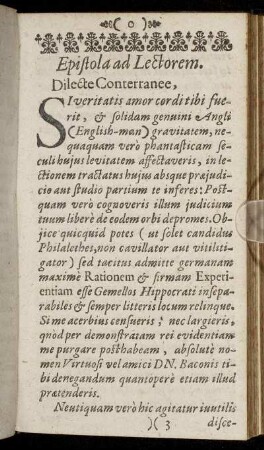 ( 0 )
Epistola ad Lectorem.
Dilecte Conterranee,
SI veritatis amor cordi tibi fue-
rit, & solidam genuini Angli
(English-man) gravitatem, ne-
quaquam verò phantasticam se-
culi hujus levitatem affectaveris, in le-
ctionem tractatus hujus absque præjudi-
cio aut studio partium te inferes: Post-
quam verò cognoveris illum judicium
tuum liberè de eodem orbi depromes. Ob-
jice quicquid potes (ut solet candidus
Philalethes, non cavillator aut vitiliti-
gator) sed tacitus admitte germanam
maximè Rationem & firmam Experi-
entiam esse Gemellos Hippocrati insepa-
rabiles & semper litteris locum relinque.
Si me acerbius censueris; nec largieris,
quòd per demonstratam rei evidentiam
me purgare posthabeam, absolutè no-
men Virtuosi vel amici DN. Baconis ti-
bi denegandum quantoperè etiam illud
prætenderis.
Neutiquam verò hic agitatur inutilis
)( 3 disce-